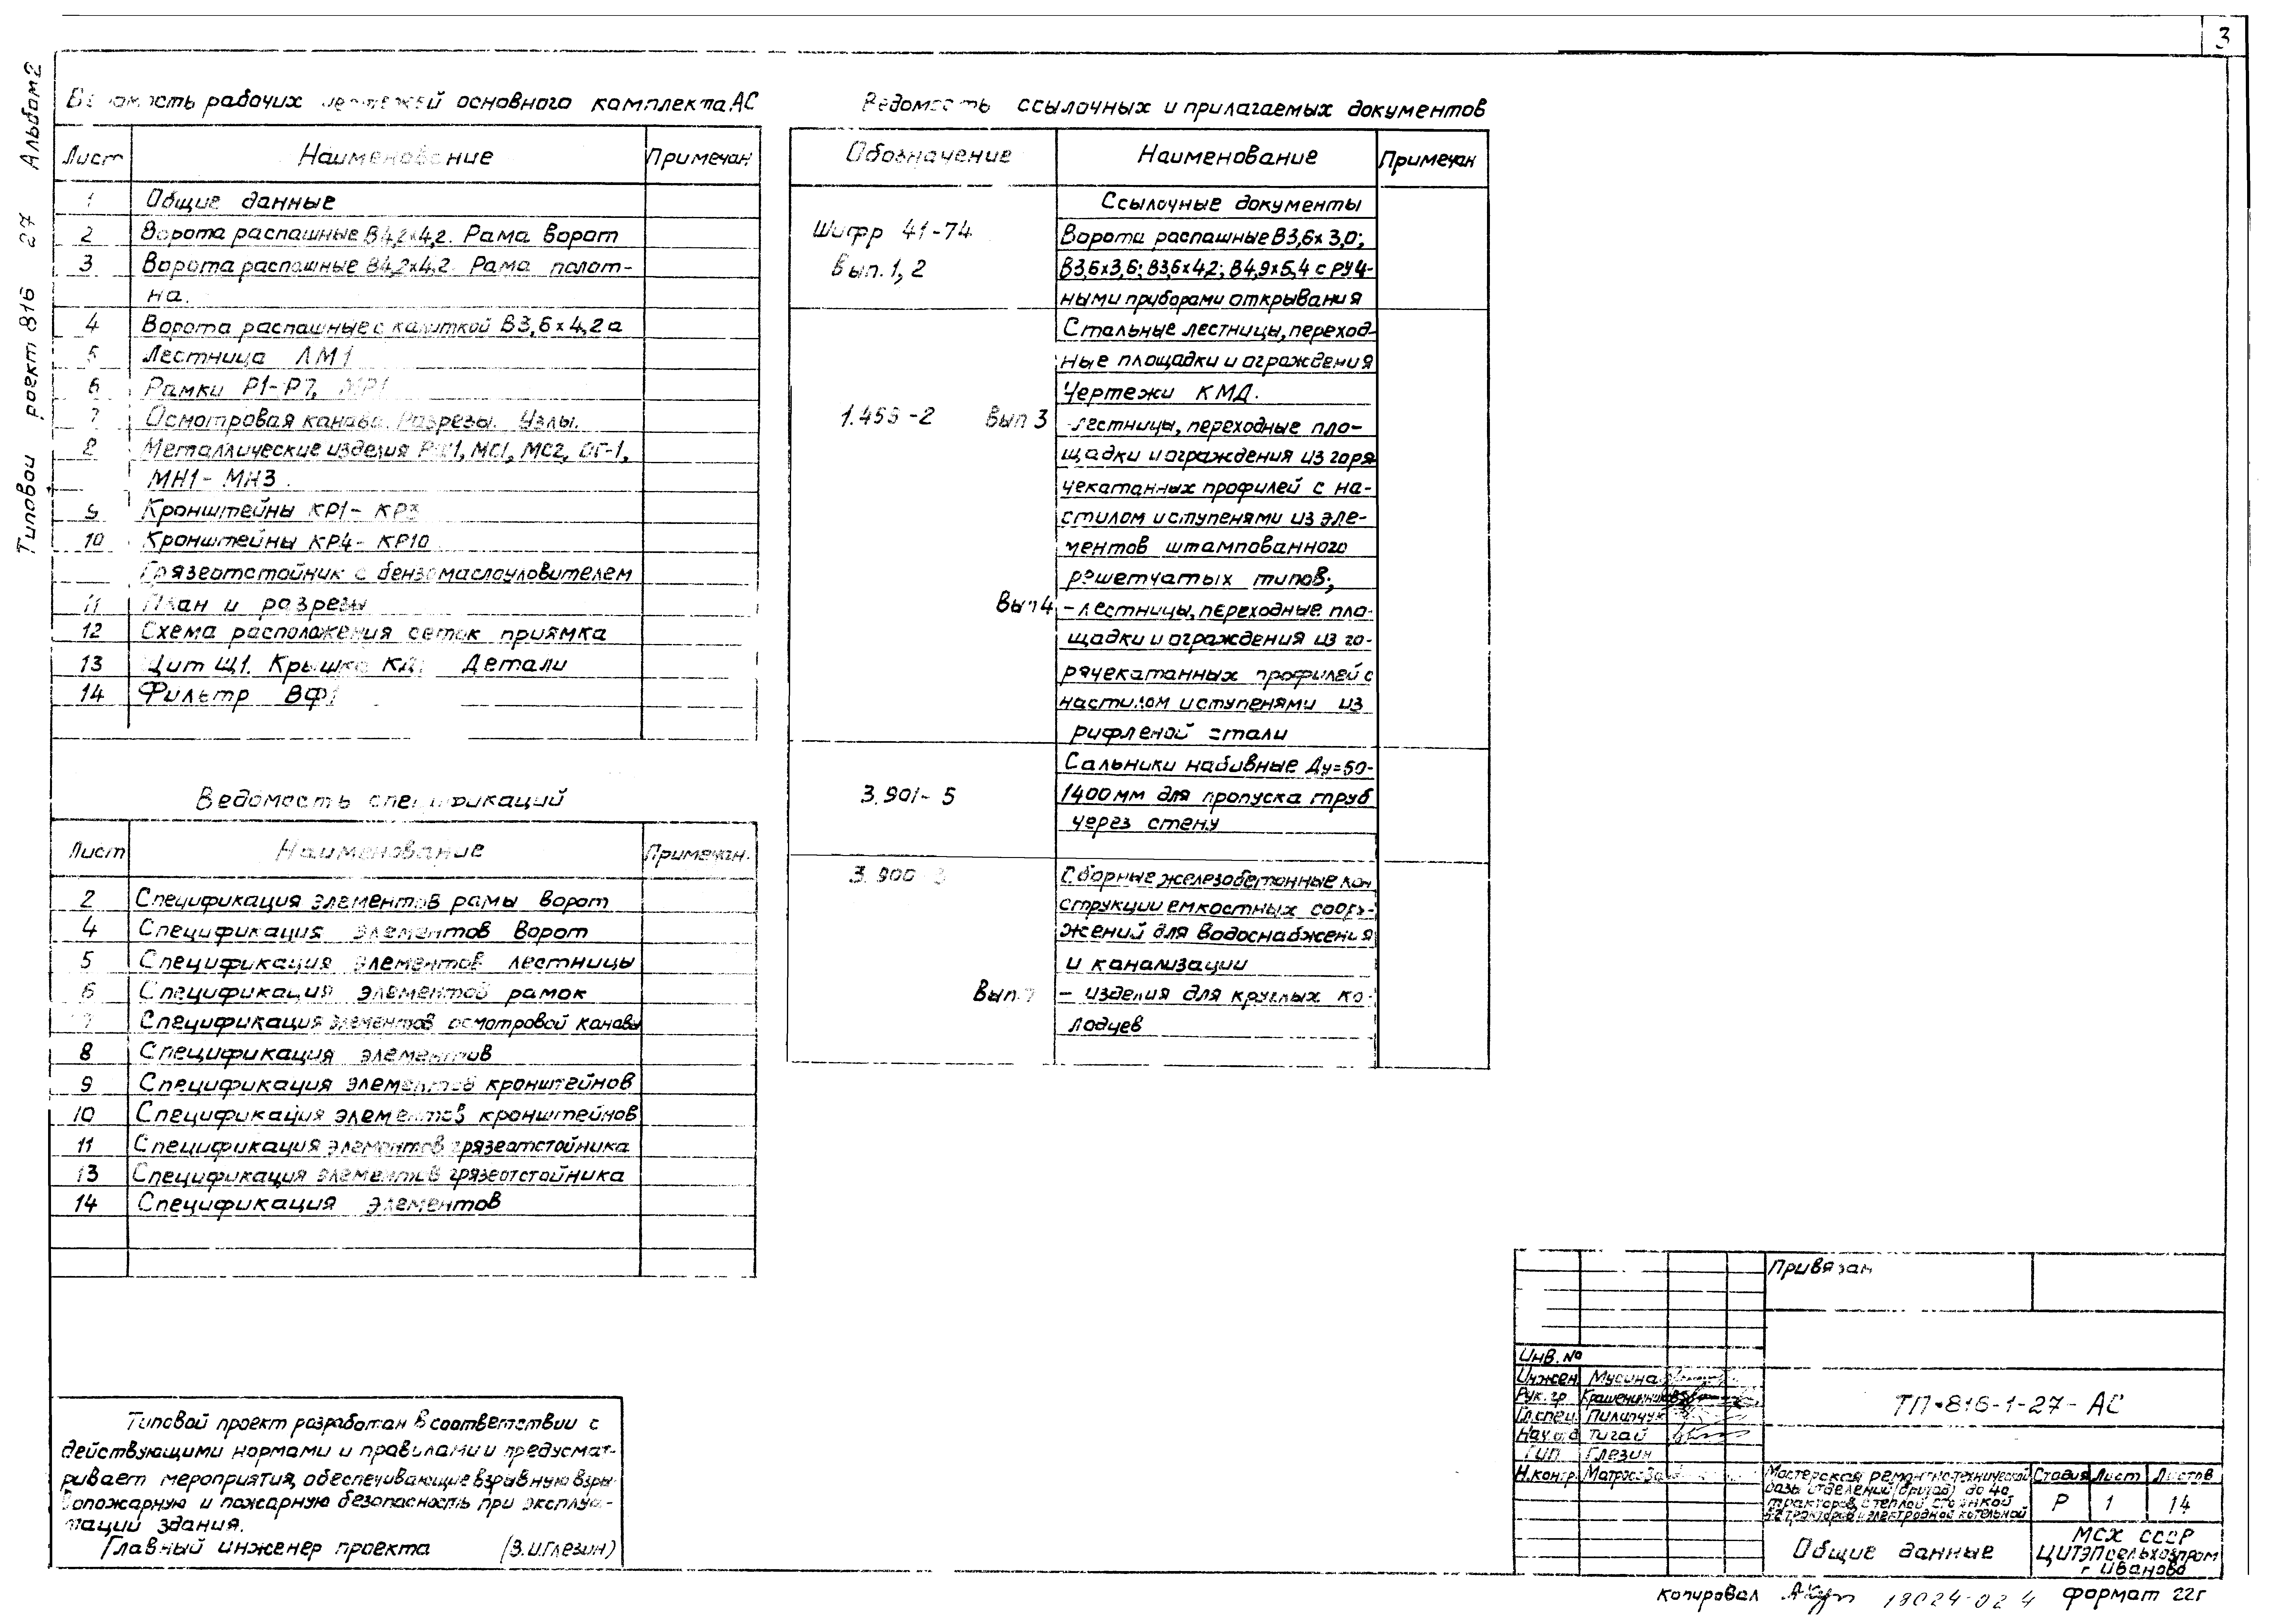 3
Типовой проект 816 27 Альбом 2
Ведомость рабочих чертежей основного комплекта АС
Лист Наименование Примечан
1 Общие данные
2 Ворота распашные В4,2х4,2. Рама ворот
3 Ворота распашные В4,2х4,2. Рама полот-
на.
4 Ворота распашные с калиткой В3,6х4,2а
5 Лестница ЛМ1
6 Рамки Р1-Р7, МР1
7 Осмотровая канава. Разрезы. Узлы.
8 Металлические изделия МС1, МС2, ОГ-1,
МН1-МН3.
9 Кронштейны КР1-КР3
10 Кронштейны КР4-КР10
Грязеотстойник с бензомаслоуловителем
11 План и разрезы
12 Схема расположения сеток приямка
13 Щит Щ1. Крышка Детали
14 Фильтр ВФ1
Ведомость спецификаций
Лист Наименование Примечан.
2 Спецификация элементов рамы ворот
4 Спецификация элементов ворот
5 Спецификация элементов лестницы
6 Спецификация элементов рамок
7 Спецификация элементов осмотровой канавы
8 Спецификация элементов
9 Спецификация элементов кронштейнов
10 Спецификация элементов кронштейнов
11 Спецификация элементов грязеотстойника
13 Спецификация элементов грязеотстойника
14 Спецификация элементов
Типовой проект разработан в соответствии с
действующими нормами и правилами и предусмат-
ривает мероприятия, обеспечивающие взрывную взры-
вопожарную и пожарную безопасность при эксплуа-
тации здания.
Главный инженер проекта (З.И.Глезин)
Ведомость ссылочных и прилагаемых документов
Обозначение Наименование Примечан
Ссылочные документы
Шифр 41-74 Ворота распашные В3,6х3,0;
Вып. 1, 2 В3,6х3,6; В3,6х4,2; В4,9х5,4 с руч-
ными приборами открывания
Стальные лестницы, переход-
ные площадки и ограждения
Чертежи КМД.
1.459-2 Вып 3 -лестницы, переходные пло-
щадки и ограждения из горя
чекатанных профилей с на-
стилом и ступенями из эле-
ментов штампованного
решетчатых типов;
Вып 4 -лестницы, переходные пло-
щадки и ограждения из го-
рячекатанных профилей с
настилом и ступенями из
рифленой стали
Сальники набивные Ду=50-
3.901-5 1400мм для пропуска труб
через стену
3.900-3 Сборные железобетонные кон
струкции емкостных соору-
жений для водоснабжения
и канализации
Вып.7 - изделия для круглых ко-
лодцев
Привязан
Инв. №
Инжен. Мусина
Рук. гр. Крашенинников
Гл.спец. Пилипчук
Нач.отд Тигай
ГИП Глезин
Н.контр. Матросова
ТП-816-1-27-АС
Мастерская ремонтно-технической
базы отделений (бригад) до 40
тракторов с теплой стоянкой
тракторов и электродной котельной
Стадия Лист Листов
Р 1 14
Общие данные
МСХ СССР
ЦИТЭПсельхозпром
г Иваново
Копировал 18024-02 4 формат 22г